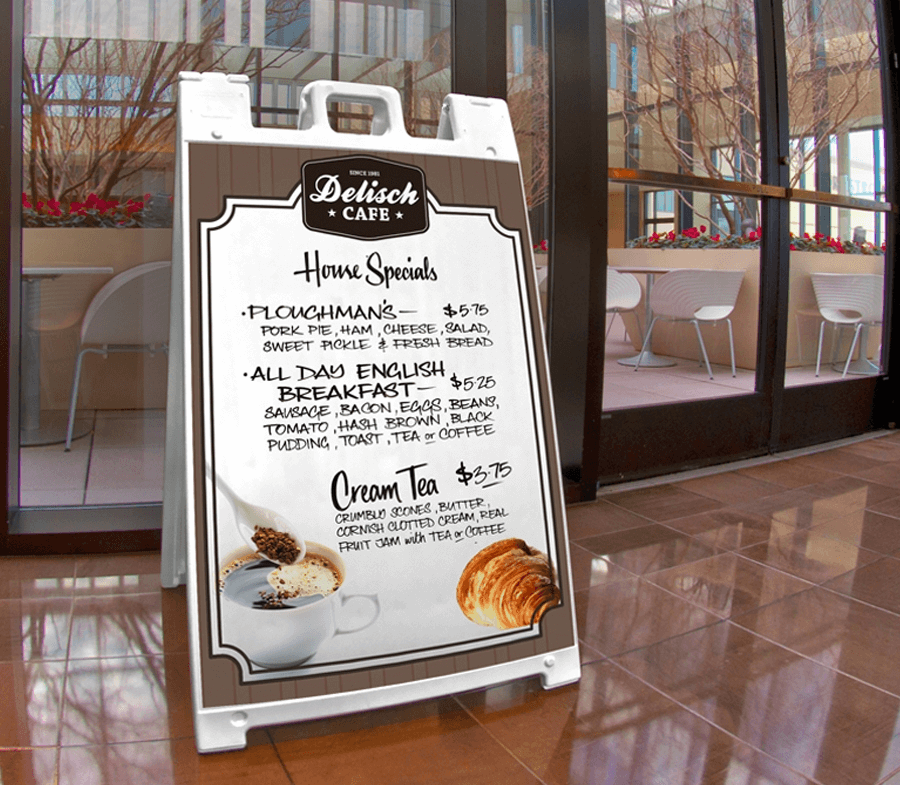 SINCE 1961
Delisch
★ CAFE ★
House Specials
·PLOUGHMAN'S— $5·75
PORK PIE, HAM, CHEESE, SALAD,
SWEET PICKLE & FRESH BREAD
·ALL DAY ENGLISH
BREAKFAST— $5·25
SAUSAGE, BACON, EGGS, BEANS,
TOMATO, HASH BROWN, BLACK
PUDDING, TOAST, TEA or COFFEE
Cream Tea $3·75
CRUMBLY SCONES, BUTTER,
CORNISH CLOTTED CREAM, REAL
FRUIT JAM with TEA or COFFEE